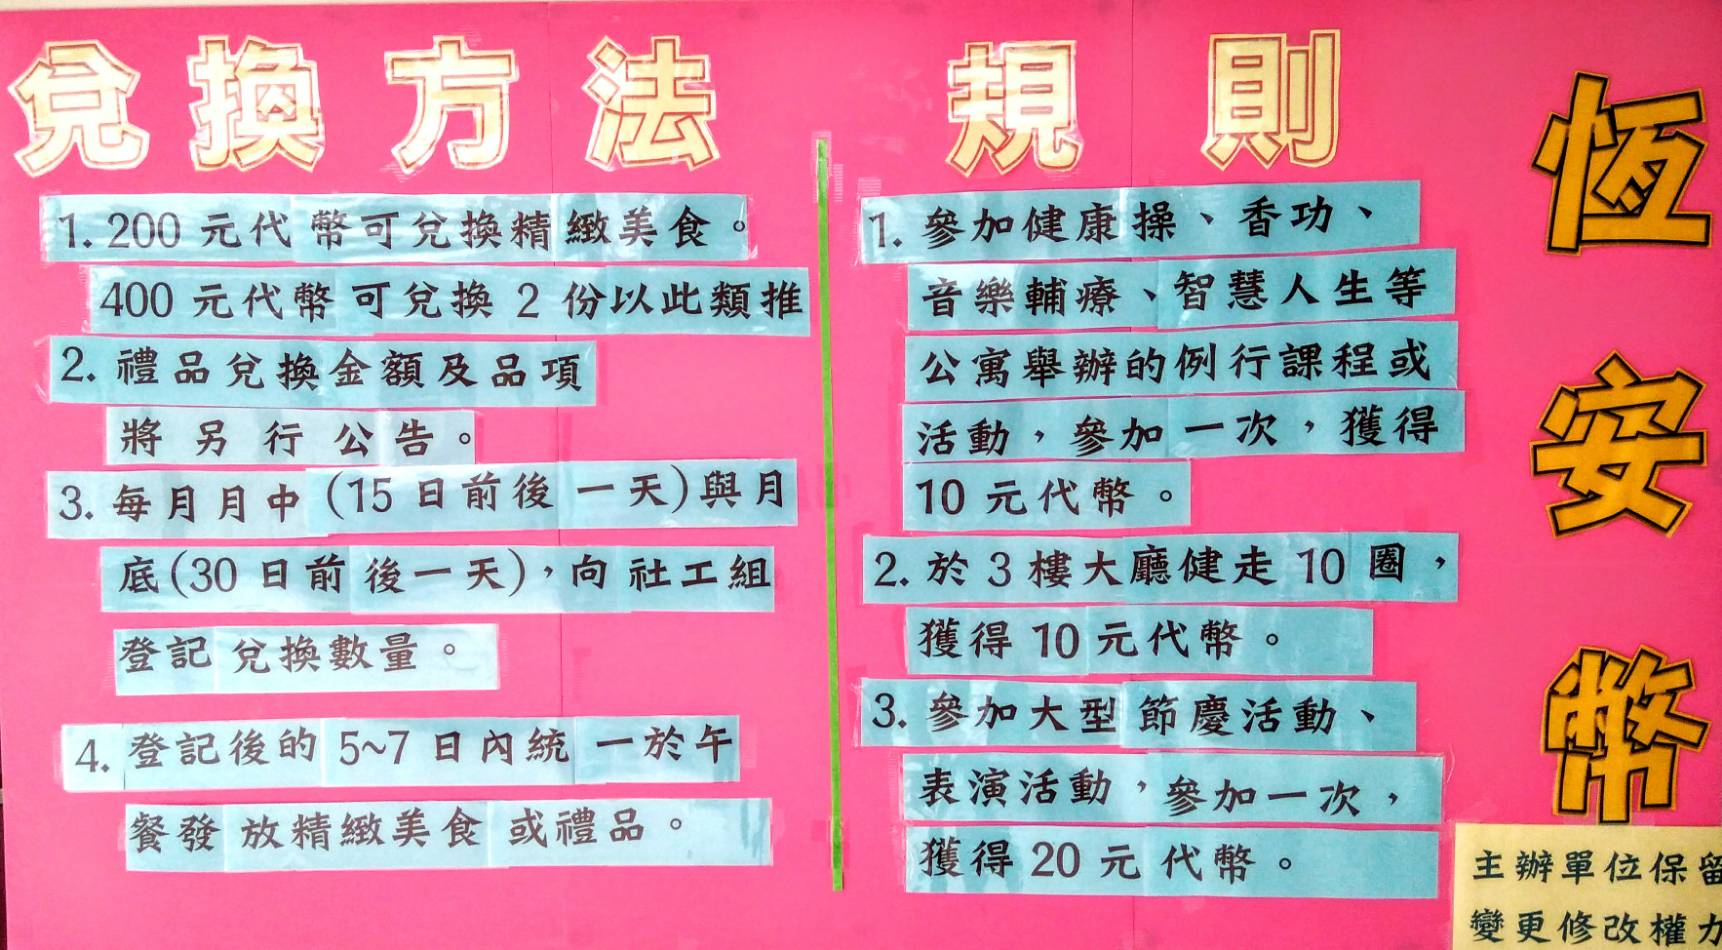 恆安幣
規則
1. 參加健康操、香功、
音樂輔療、智慧人生等
公寓舉辦的例行課程或
活動，參加一次，獲得
10 元代幣。
2. 於 3 樓大廳健走 10 圈，
獲得 10 元代幣。
3. 參加大型節慶活動、
表演活動，參加一次，
獲得 20 元代幣。
兌換方法
1. 200 元代幣可兌換精緻美食。
400 元代幣可兌換 2 份以此類推
2. 禮品兌換金額及品項
將另行公告。
3. 每月月中(15 日前後一天)與月
底(30 日前後一天)，向社工組
登記兌換數量。
4. 登記後的 5~7 日內統一於午
餐發放精緻美食或禮品。
主辦單位保留
變更修改權力